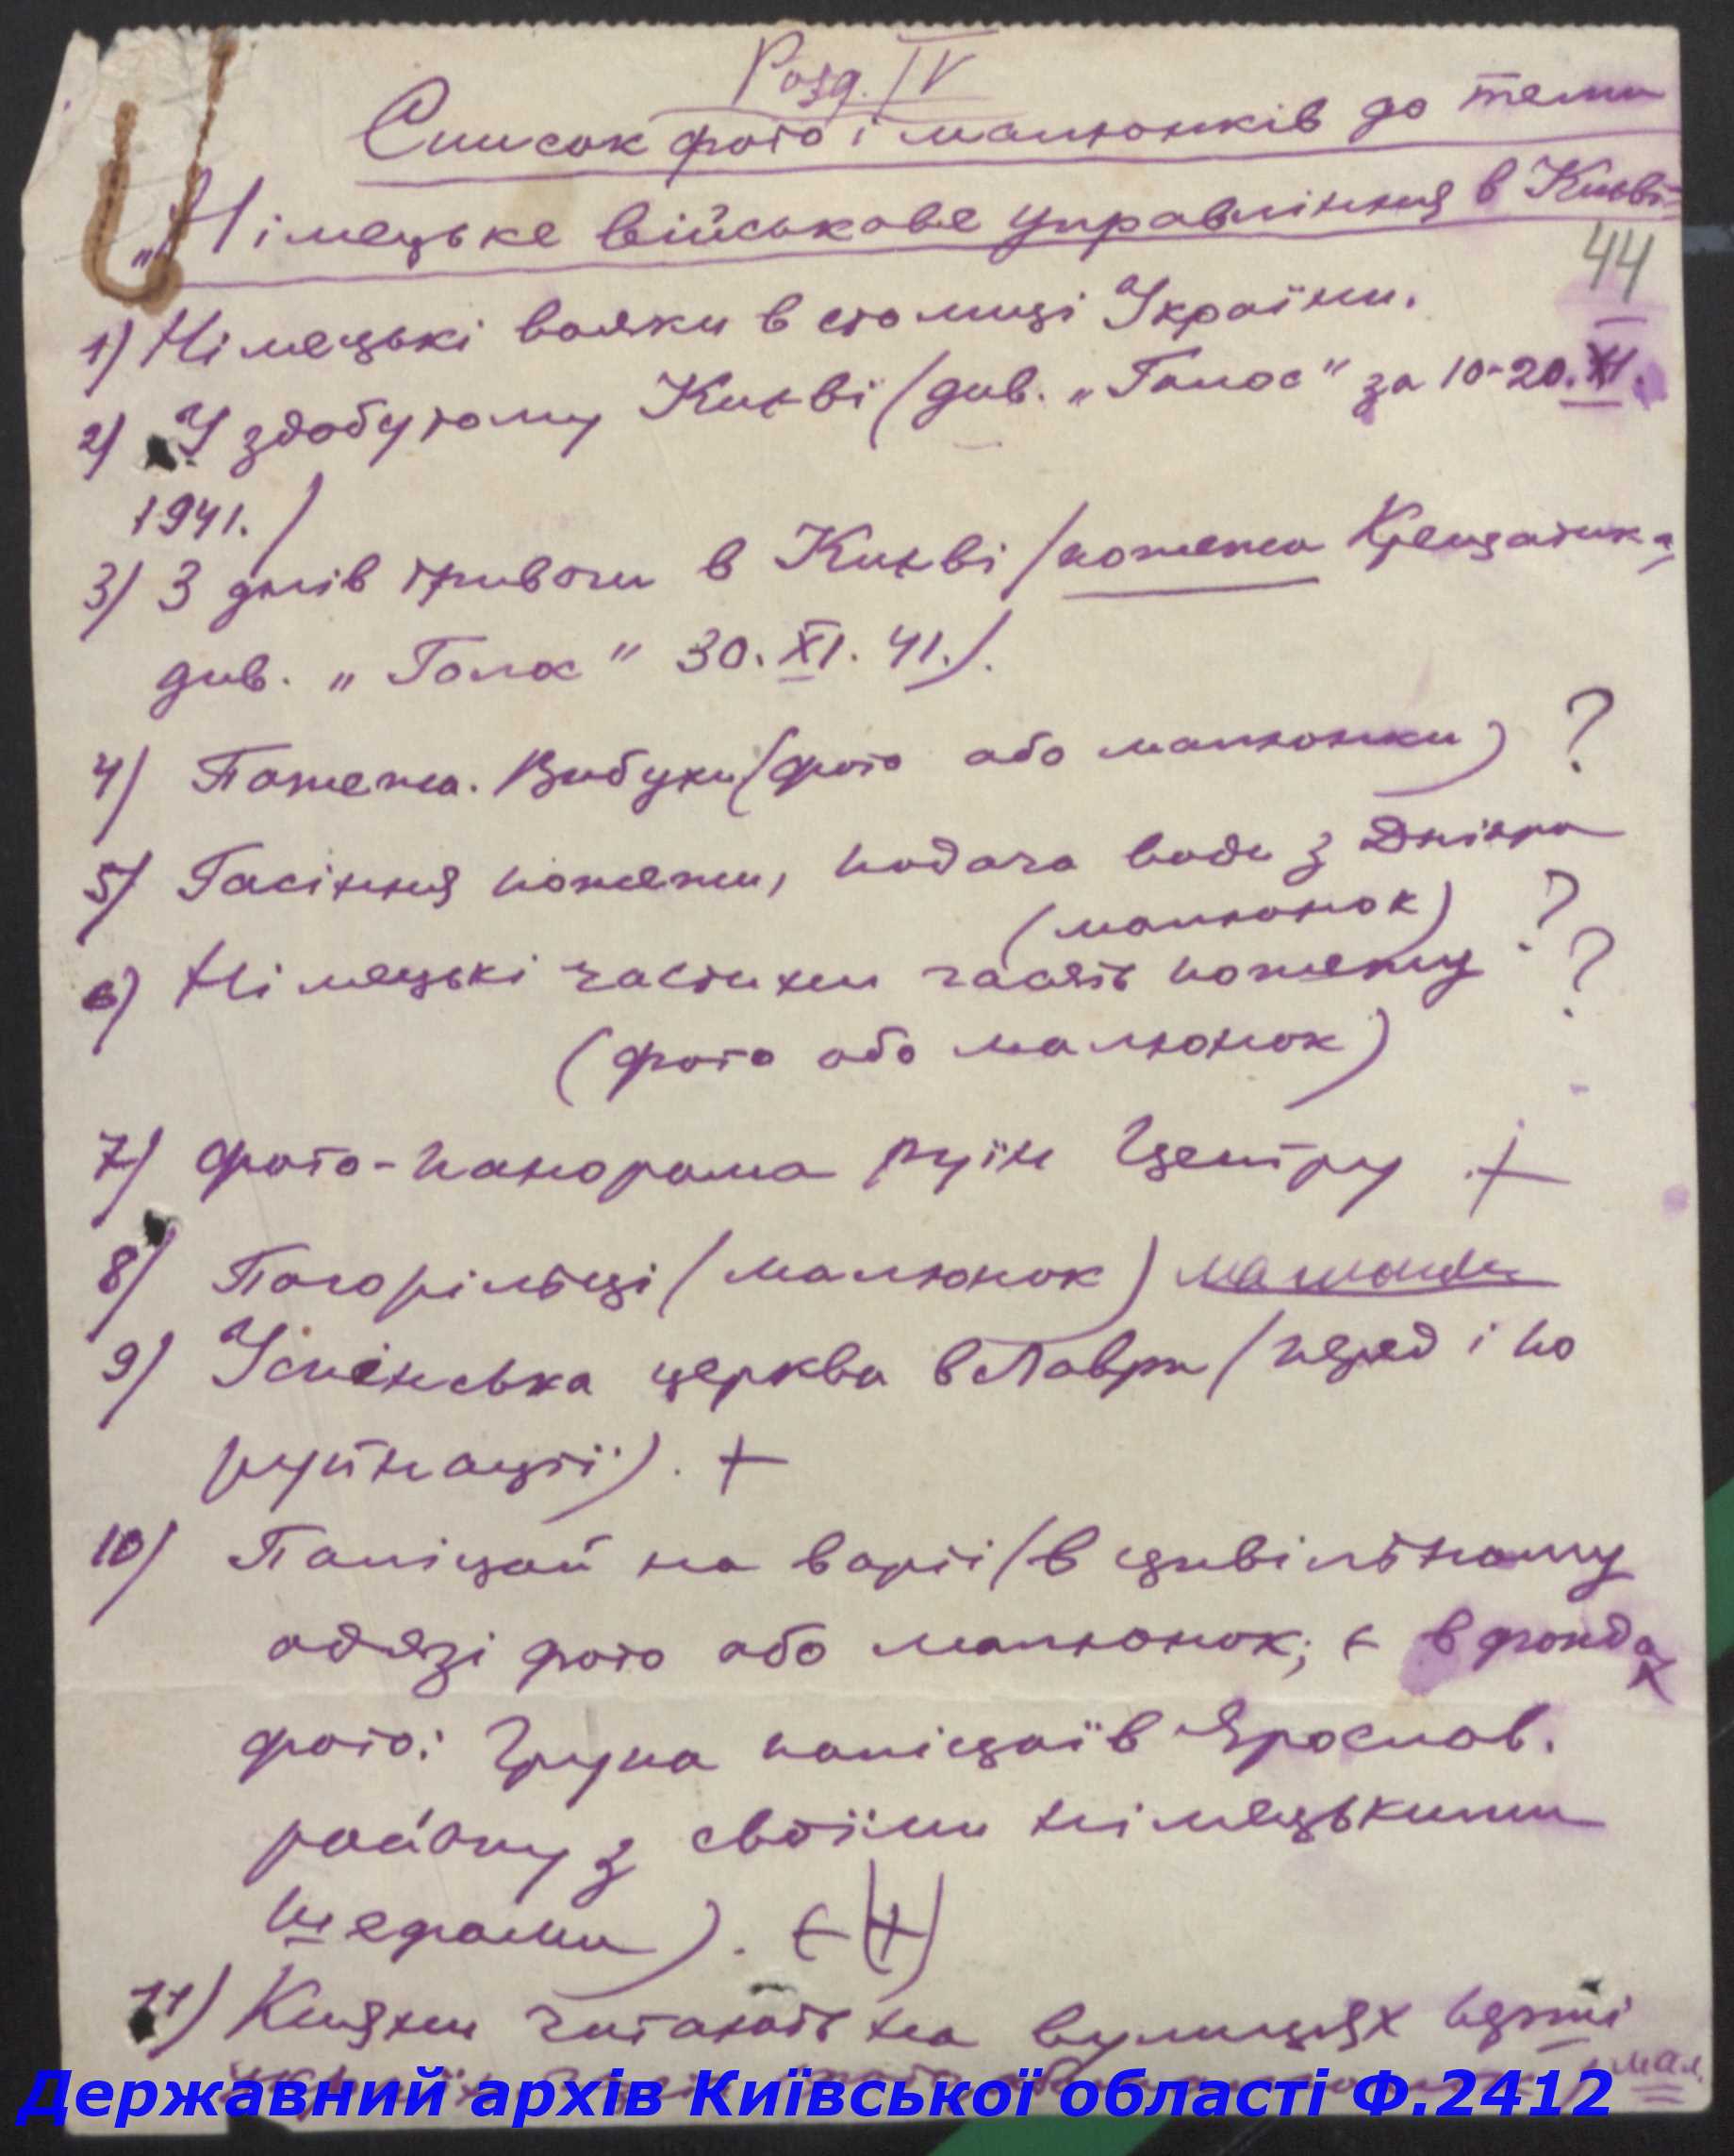 Розд. IV
Список фото і малюнків до теми
„Німецьке військове управління в Києві"
44
1) Німецькі вояки в столиці України.
2) У здобутому Києві (див. „Голос" за 10-20.XI.
1941.)
3) З днів тривоги в Києві (пожежа Крещатика,
див. „Голос" 30.XI.41.).
4) Пожежа. Вибухи (фото або малюнки) ?
5) Гасіння пожежи, подача води з Дніпра
(малюнок) ?
6) Німецькі частини гасять пожежу ?
(фото або малюнок)
7) Фото-панорама руїн Центру +
8) Погорільці (малюнок)
9) Успенська церква в Лаври (перед і по
руйнації). +
10) Поліцай на варті (в цивільному
одязі фото або малюнок; є в фондах
фото: Група поліцаїв Ярослав.
району з своїми німецькими
шефами). (+)
11) Кияни читають на вулицях перші
мал.
Державний архів Київської області Ф.2412